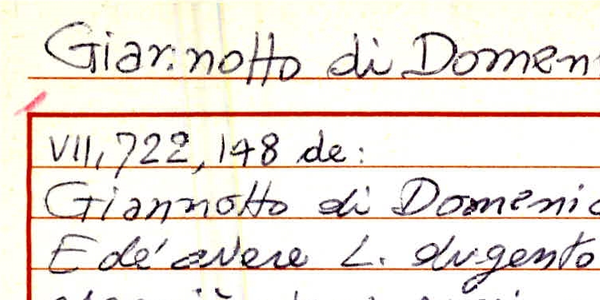 Giannotto di Domen
VII, 722, 148 de:
Giannotto di Domenic
E de' avere L. dugento